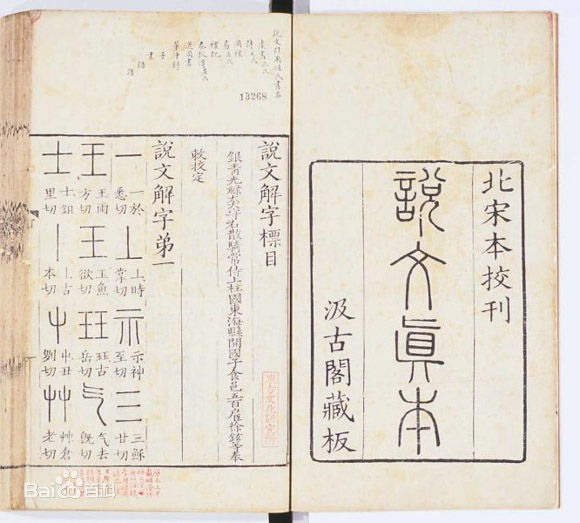 北宋本挍刊
說文眞本
汲古閣藏板
13268
說文解字標目
銀青光祿大夫守右散騎常侍上柱國東海縣開國子食邑五百戶臣徐鉉等奉
敕挍定
說文解字第一
一 一於悉切 丄 丄時掌切 示 示神至切 三 三穌甘切
王 王雨方切 王 玉魚欲切 玨 玨古岳切 气 气去旣切
士 士鉏里切 丨 丨古本切 屮 屮丑切 艸 艸倉老切
Bai百科